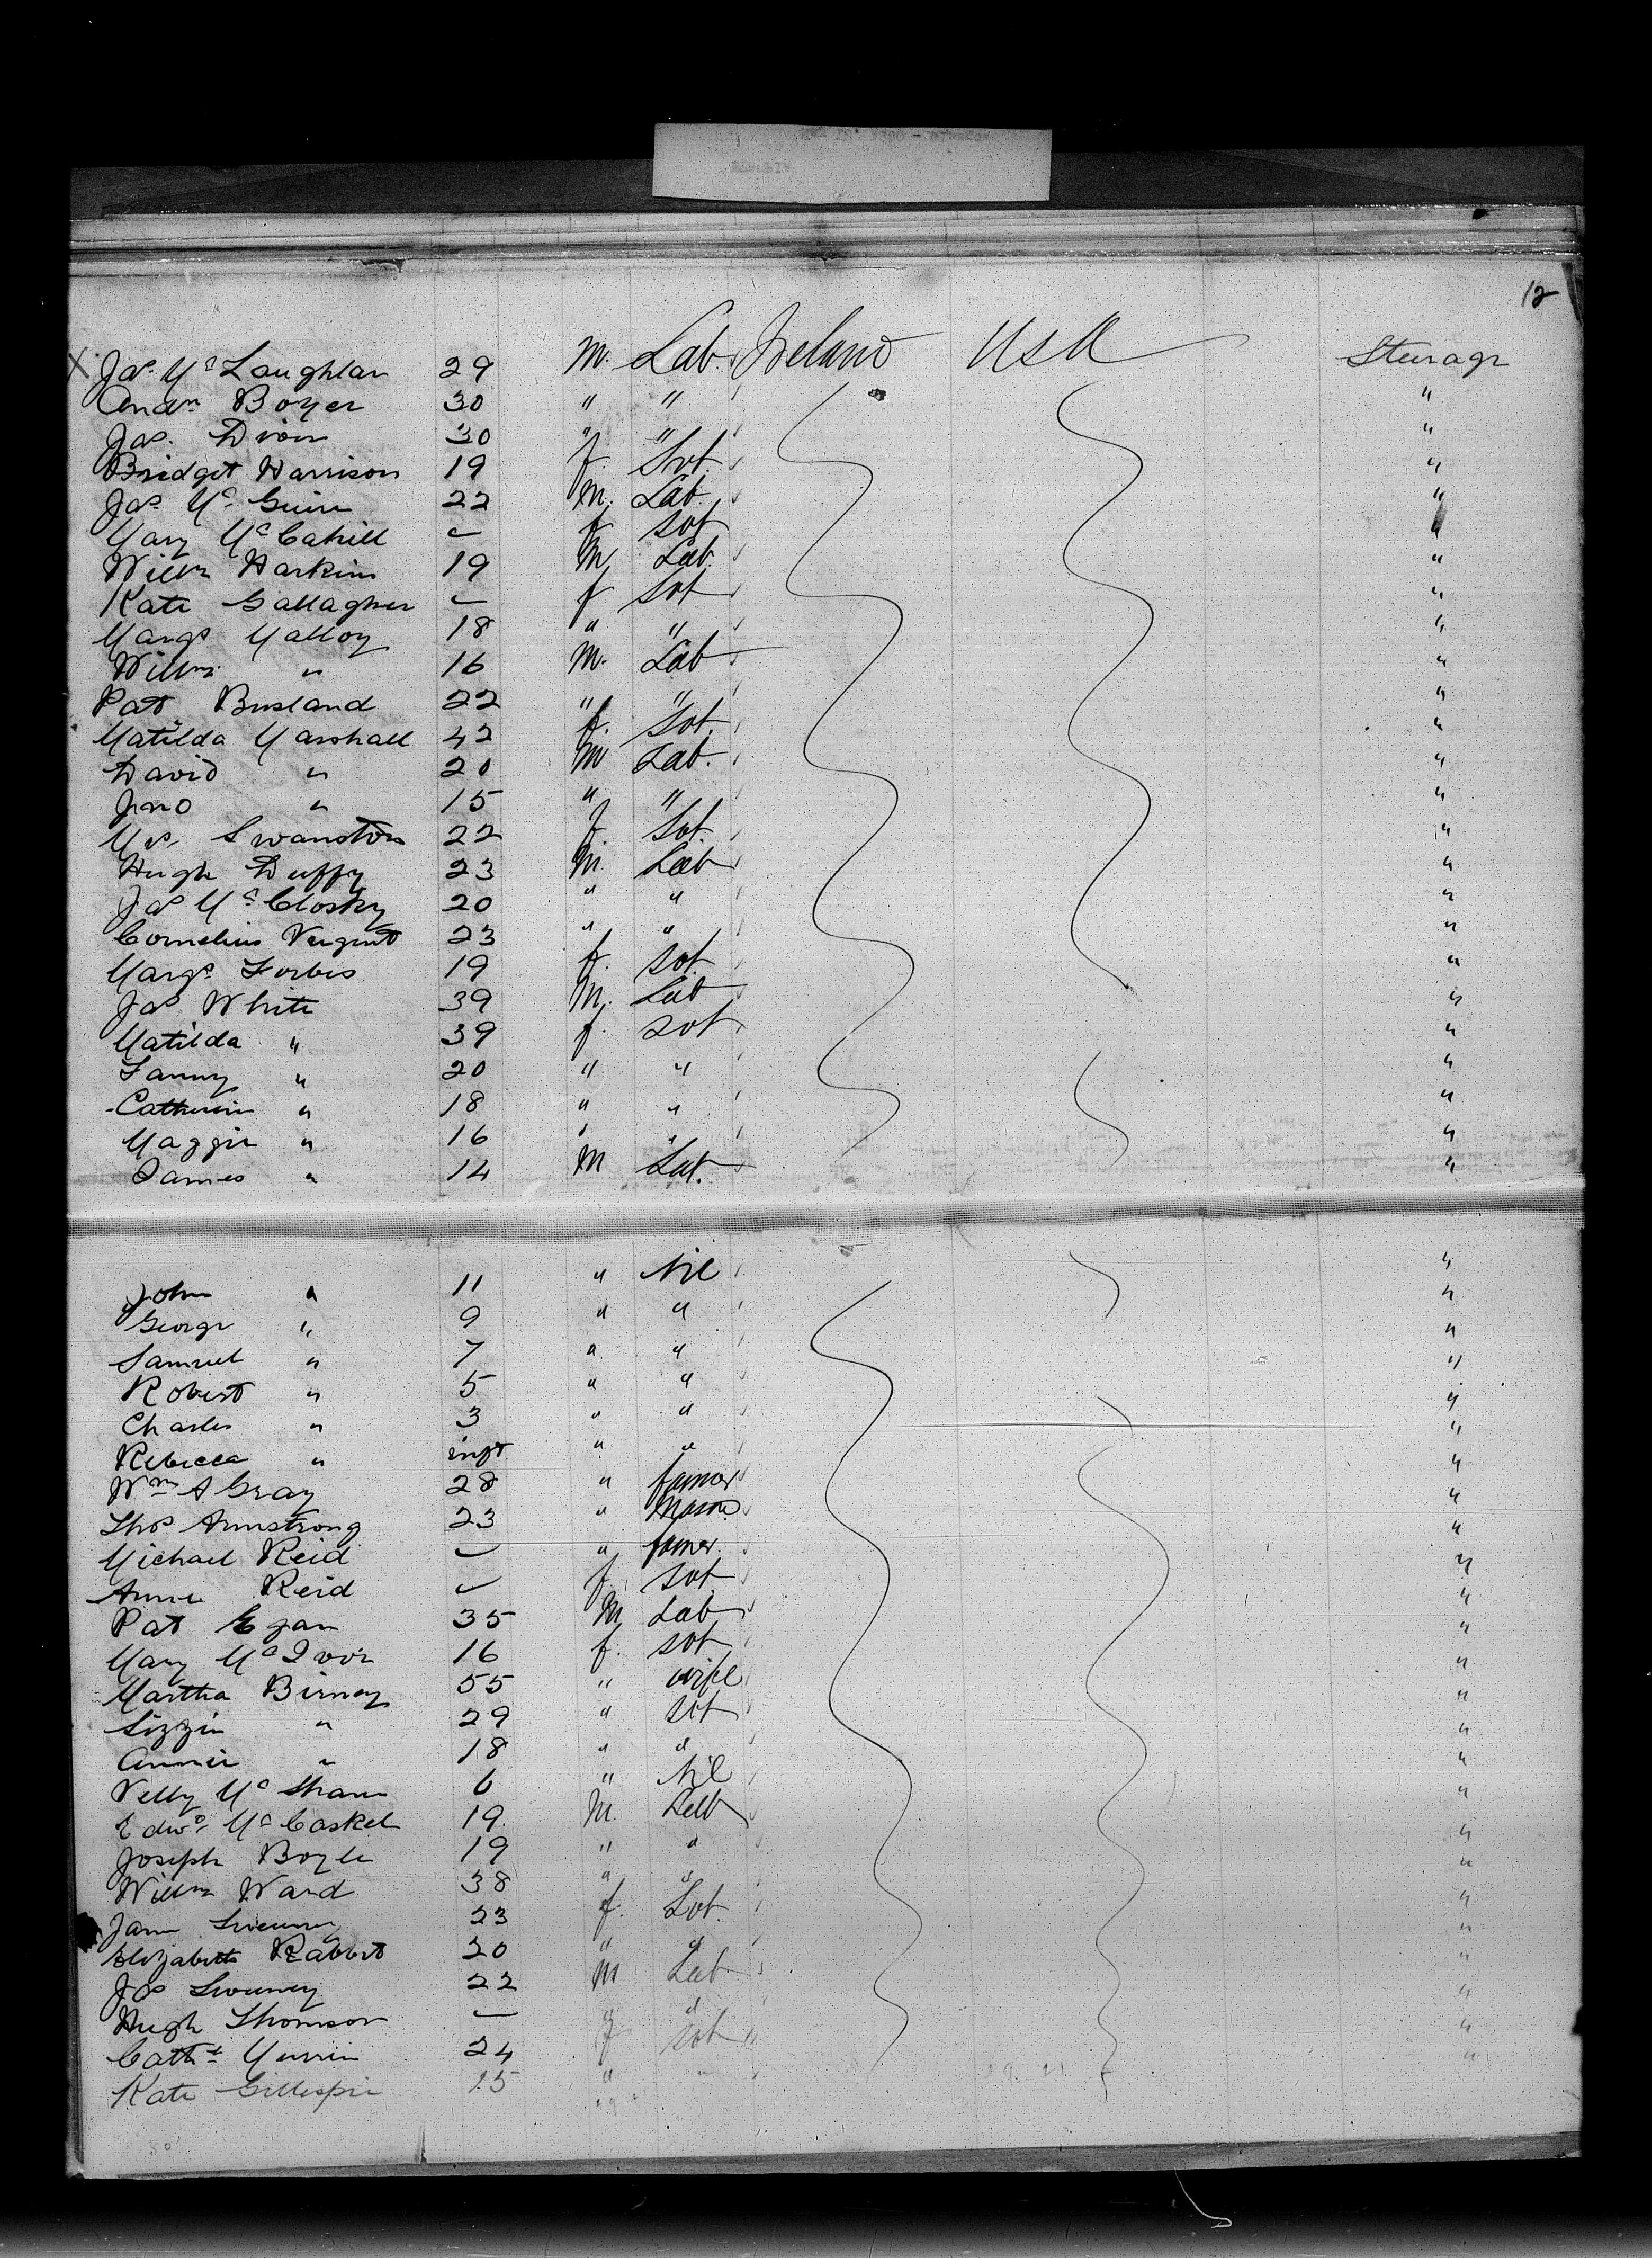 12
X Jas. Mc Laughlan 29 M. Lab. Ireland USA Steerage
Andw Boyer 30 " " "
Jas. Dion 30 " " "
Bridget Harrison 19 f. Svt. "
Jas Mc Guire 22 M. Lab. "
Mary Mc Cahill ~ f svt "
Willm Harkins 19 M Lab. "
Kate Gallagher ~ f Svt "
Margt Malloy 18 " " "
Willm " 16 M. Lab "
Pat 22 " " "
Matilda Marshall 42 f. Svt. "
David " 20 M Lab. "
Jno " 15 " " "
Swanston 22 f Svt. "
Hugh Duffy 23 M. Lab "
Jas Mc Closky 20 " " "
Cornelius 23 " " "
Margt Forbes 19 f. svt. "
Jas White 39 M. Lab "
Matilda " 39 f. svt "
Fanny " 20 " " "
Catherine " 18 " " "
Maggie " 16 " " "
James " 14 M Lab. "
John " 11 " Nil "
George " 9 " " "
Samuel " 7 " " "
Robert " 5 " " "
Charles " 3 " " "
Rebecca " inft " " "
Wm A Gray 28 " famer "
Thos Armstrong 23 " Mason "
Michael Reid ~ " famer. "
Annie Reid ~ f svt "
Pat Egan 35 M Lab "
Mary Mc Ivor 16 f. svt "
Martha Birney 55 " wife "
Lizzie " 29 " svt "
Annie " 18 " " "
Mc Shane 6 " Nil "
Edwd Mc Caskel 19. M. Lab "
Joseph Boyle 19 " " "
Willm Ward 38 " " "
Jane Sweeney 23 f. Svt. "
Elizabeth Rabbit 20 " " "
Jas Sweeney 22 M Lab "
Hugh Thomson ~ " " "
Cathe 24 f svt "
Kate Gillespie 15 " " "